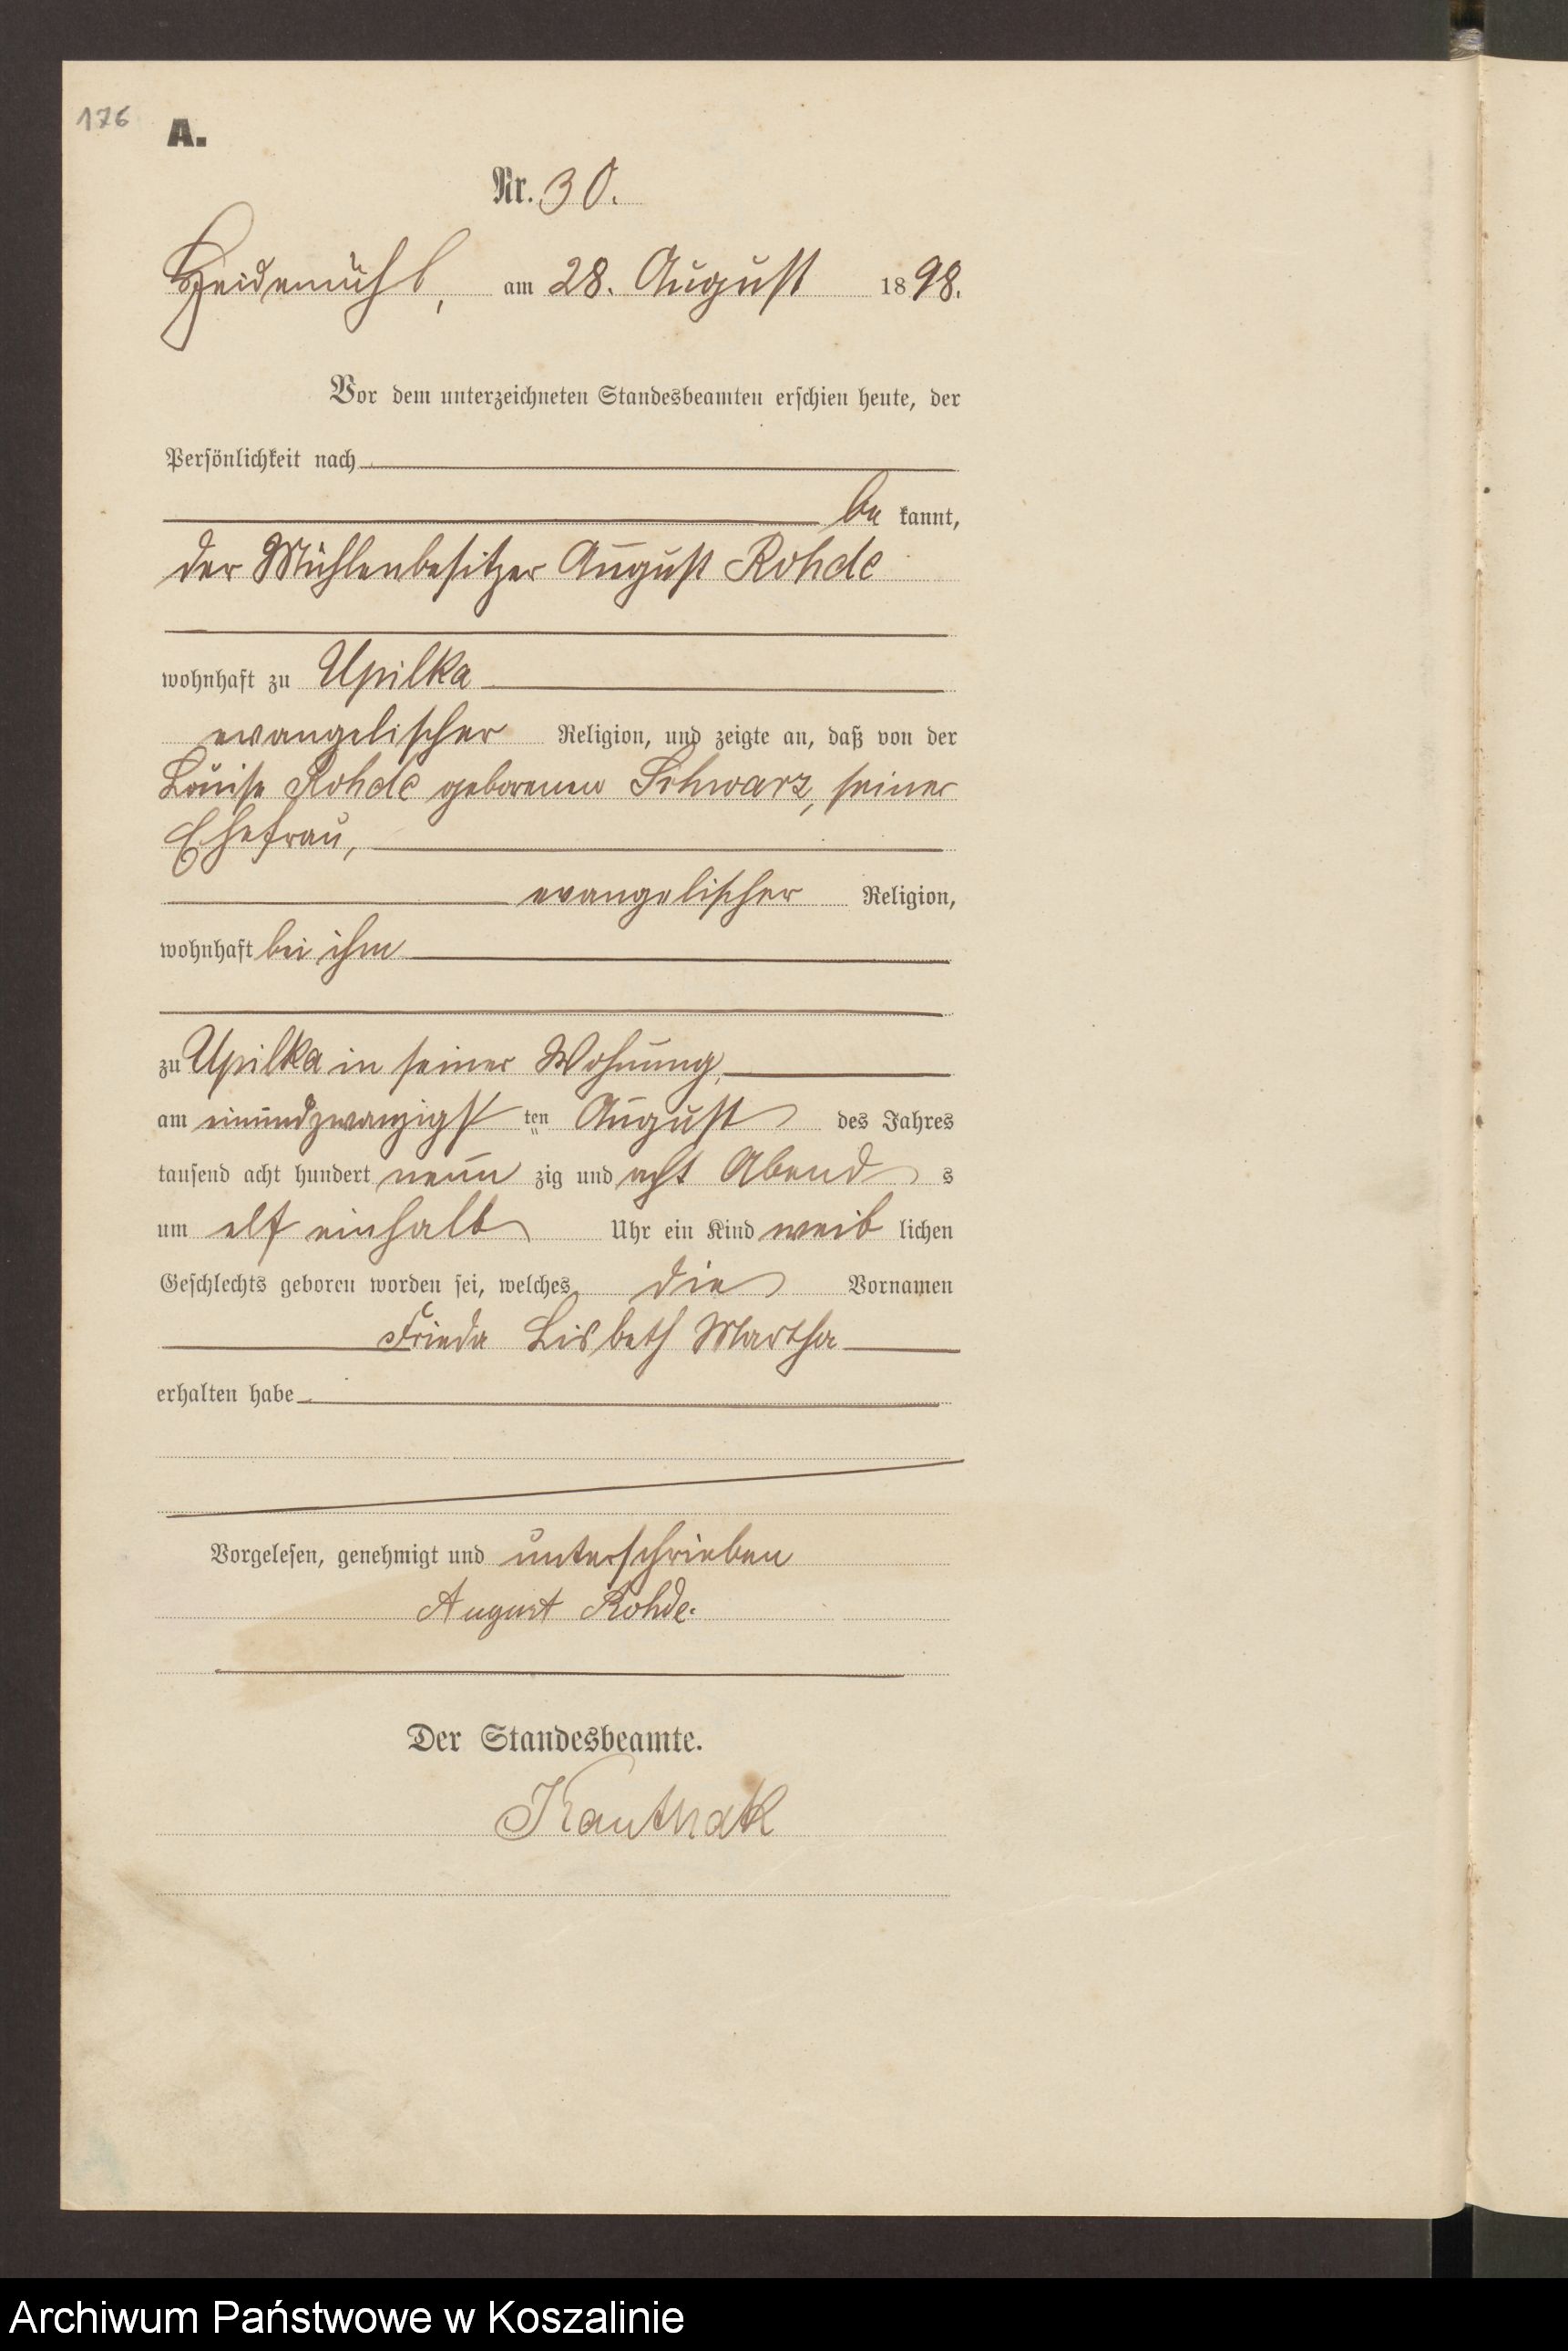 176
A.
Nr. 30.
Heidemühl, am 28. August 1898.
Vor dem unterzeichneten Standesbeamten erschien heute, der
Persönlichkeit nach
be kannt,
der Mühlenbesitzer August Rohde
wohnhaft zu Upilka
evangelischer Religion, und zeigte an, daß von der
Louise Rohde geborenen Schwarz, seiner
Ehefrau,
evangelischer Religion,
wohnhaft bei ihm
zu Upilka in seiner Wohnung,
am einundzwanzigst ten August des Jahres
tausend acht hundert neun zig und acht Abend s
um elf einhalb Uhr ein Kind weib lichen
Geschlechts geboren worden sei, welches die Vornamen
Frieda Lisbeth Martha
erhalten habe
Vorgelesen, genehmigt und unterschrieben
August Rohde.
Der Standesbeamte.
Kauthak
Archiwum Państwowe w Koszalinie